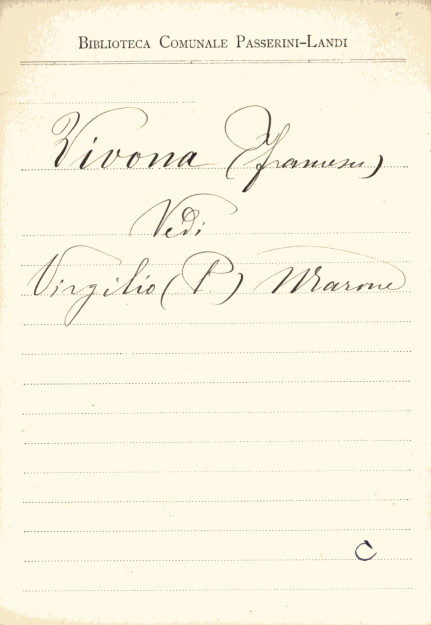 BIBLIOTECA COMUNALE PASSERINI-LANDI
Vivona (Francesco)
Vedi
Virgilio (P.) Marone
C